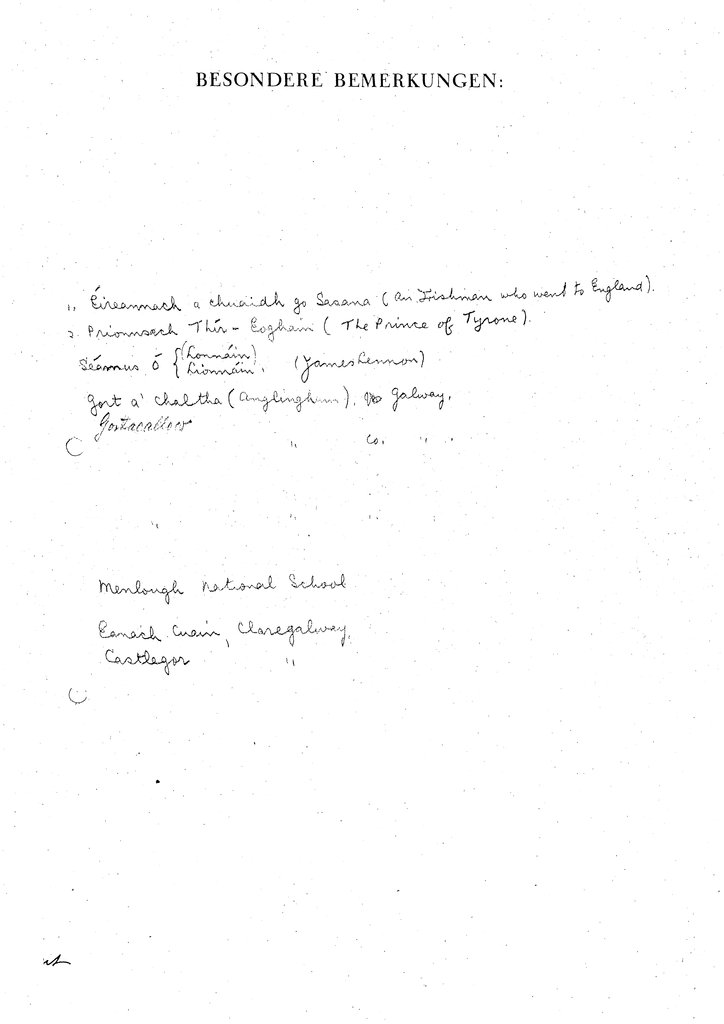 BESONDERE BEMERKUNGEN:
1. Éireannach a chuaidh go Sasana (An Irishman who went to England).
2. Prionnsach Thír-Eoghain (The Prince of Tyrone).
Séamus Ó {(Lonnáin)
Lionnáin. (James Lennon)
Gort a' Chaltha (Anglingham), Galway.
Gortacallow
" Co. " .
" " "
Menlough National School
Eanach Cuain, Claregalway.
Castlegar "